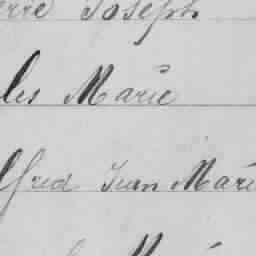 erre Joseph
les Marie
lfred Jean Marie